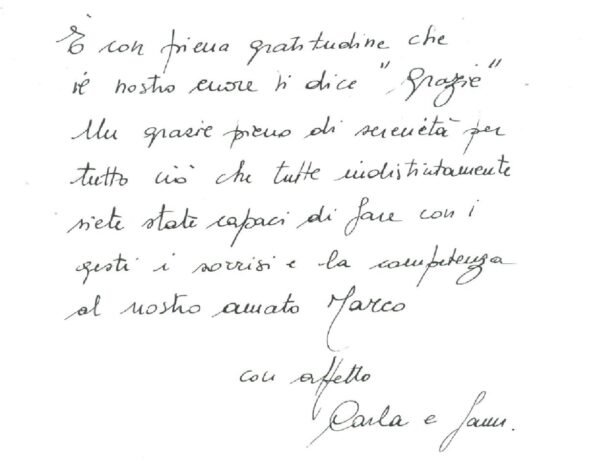 È con piena gratitudine che
il nostro cuore vi dice "Grazie"
Un grazie pieno di serenità per
tutto ciò che tutte indistintamente
siete state capaci di fare con i
gesti i sorrisi e la competenza
al nostro amato Marco
con affetto
Carla e